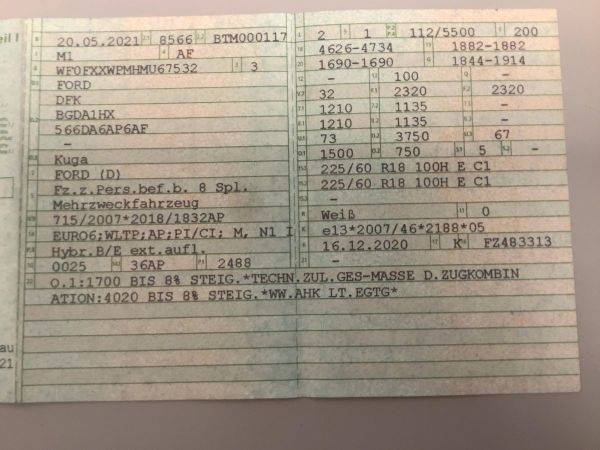 eil I
20.05.2021 8566 BTM000117
M1 AF
WF0FXXWPMHMU67532 3
FORD
DFK
BGDA1HX
566DA6AP6AF
-
Kuga
FORD (D)
Fz.z.Pers.bef.b. 8 Spl.
Mehrzweckfahrzeug
715/2007*2018/1832AP
EURO6;WLTP;AP;PI/CI; M, N1 I
Hybr.B/E ext.aufl.
0025 36AP 2488
2 1 112/5500 200
4626-4734 1882-1882
1690-1690 1844-1914
- 100 -
32 2320 2320
1210 1135 -
1210 1135 -
73 3750 67
1500 750 5 -
225/60 R18 100H E C1
225/60 R18 100H E C1
-
Weiß 0
e13*2007/46*2188*05
16.12.2020 K FZ483313
-
O.1:1700 BIS 8% STEIG.*TECHN.ZUL.GES-MASSE D.ZUGKOMBIN
ATION:4020 BIS 8% STEIG.*WW.AHK LT.EGTG*
au
21